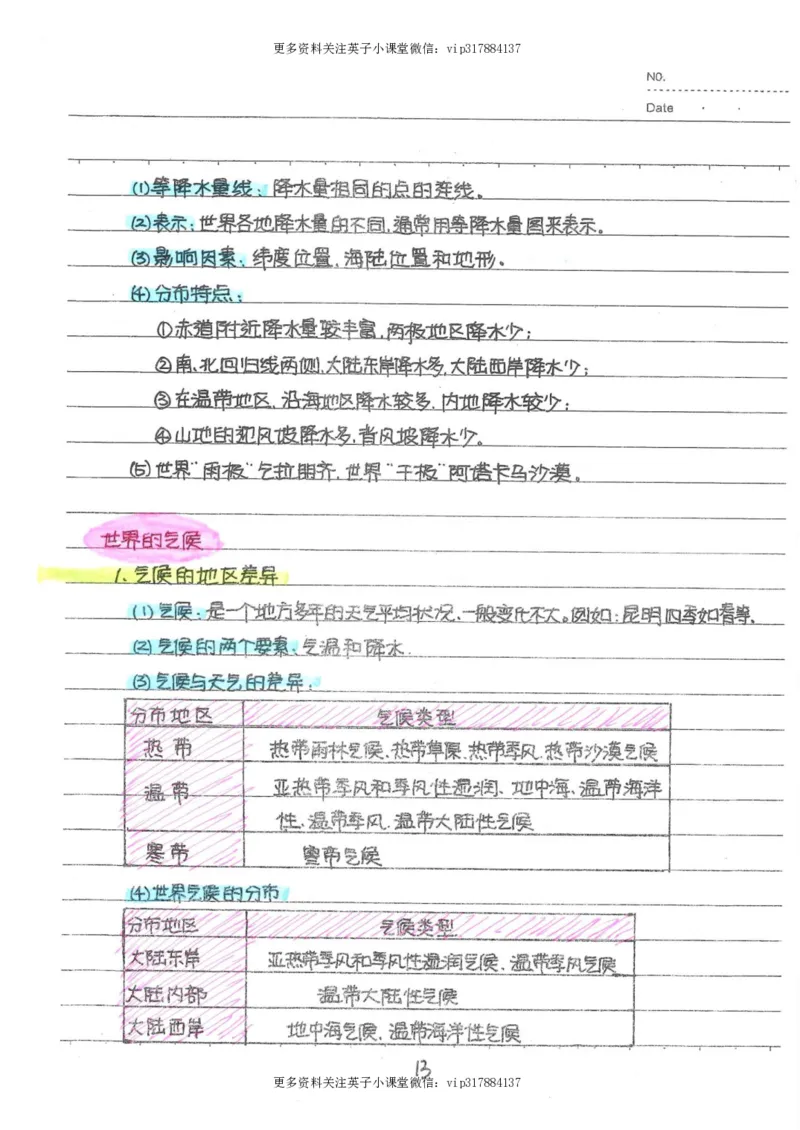 更多资料关注英子小课堂微信：vip317884137
NO.
Date
(1)等降水量线：降水量相同的点的连线。
(2)表示：世界各地降水量的不同,通常用等降水量图来表示。
(3)影响因素：纬度位置,海陆位置和地形。
(4)分布特点：
①赤道附近降水量较丰富,两极地区降水少；
②南、北回归线两侧,大陆东岸降水多,大陆西岸降水少；
③在温带地区,沿海地区降水较多,内地降水较少；
④山地的迎风坡降水多,背风坡降水少。
(5)世界“雨极”乞拉朋齐,世界“干极”阿塔卡马沙漠。
世界的气候
1、气候的地区差异
(1)气候：是一个地方多年的天气平均状况、一般变化不大。例如：昆明四季如春等.
(2)气候的两个要素、气温和降水.
(3)气候与天气的差异：
分布地区 气候类型
热带 热带雨林气候、热带草原、热带季风、热带沙漠气候
温带 亚热带季风和季风性湿润、地中海、温带海洋
性、温带季风、温带大陆性气候
寒带 寒带气候
(4)世界气候的分布
分布地区 气候类型
大陆东岸 亚热带季风和季风性湿润气候、温带季风气候
大陆内部 温带大陆性气候
大陆西岸 地中海气候、温带海洋性气候
13
更多资料关注英子小课堂微信：vip317884137